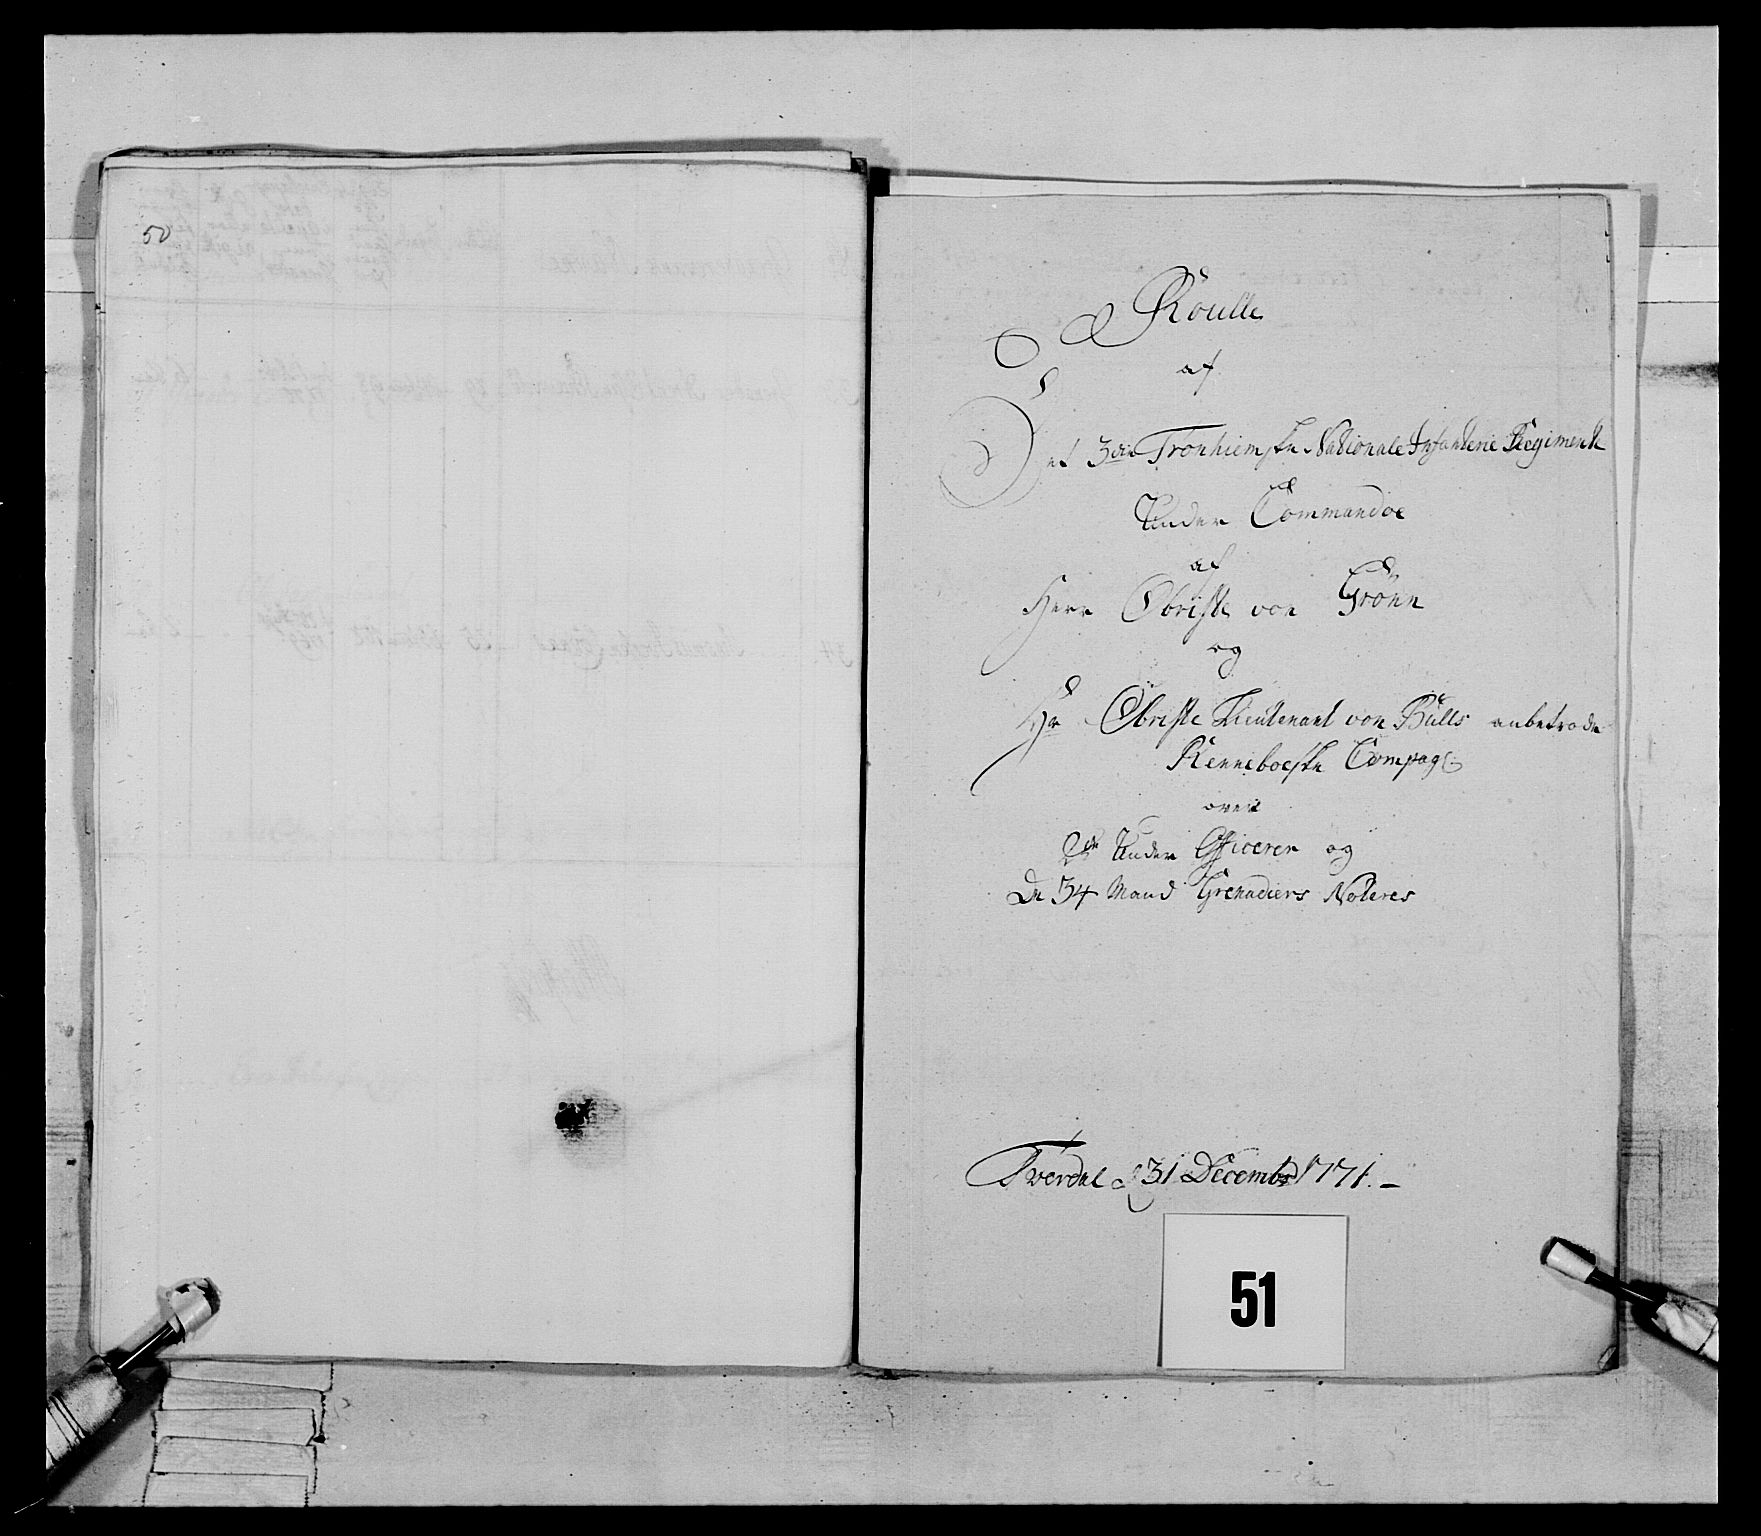 50
Roulle
af
Det 3die Tronhiemske Nationale Infanterie Regiment
Under Commandoe
af
Herr Obriste von Grönn
og
Hr Obriste Lieutenant von Bülls anbetrode
Renneboeske Compag:
over
De Under Officerer og
De 34 Mand Grenadiers Noteres
Tverdal d 31 Decembr 1771.-
51